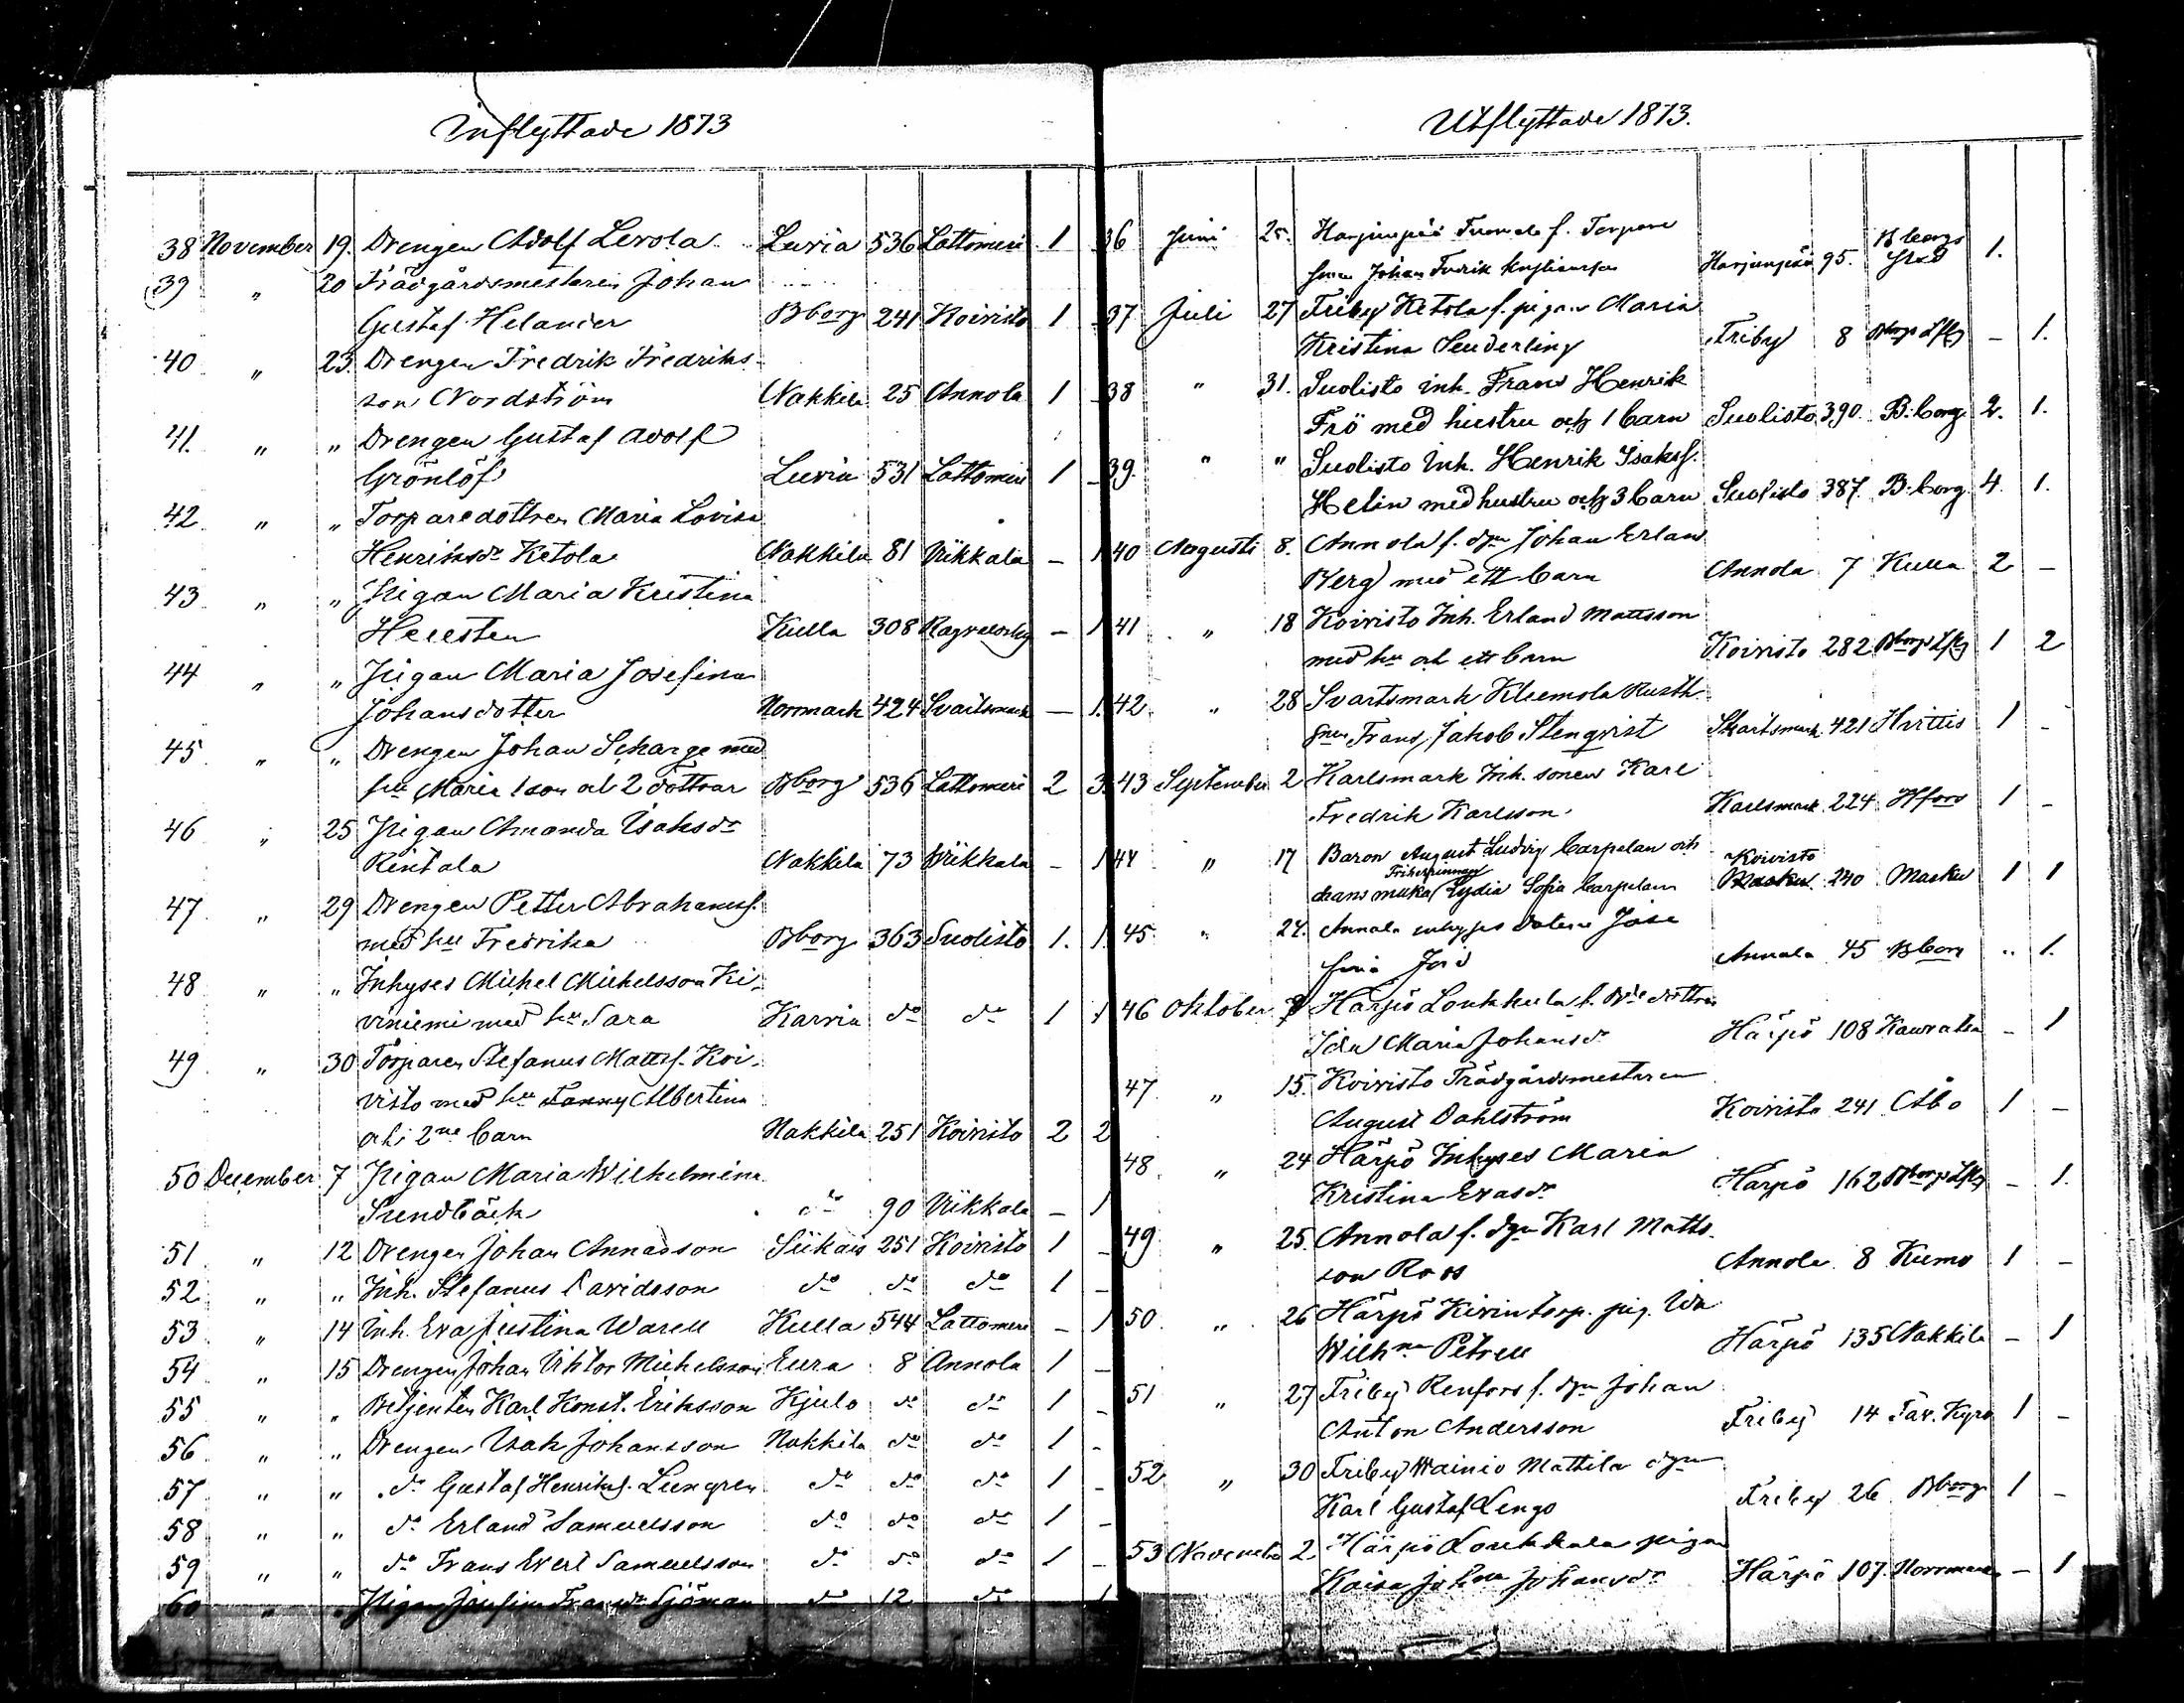 Inflyttade 1873
38 November 19. Drengen Adolf Levola Luvia 536 Lattomeri 1
39 " 20 Trädgårdsmästaren Johan
Gustaf Helander Bborg 241 Koivisto 1
40 " 23. Drengen Fredrik Fredriks-
son Nordström Nakkila 25 Annola 1
41. " " Drengen Gustaf Adolf
Grönlöf Luvia 531 Lattomeri 1 -
42 " " Torparedottren Maria Lovisa
Henriksdr Ketola Nakkila 81 Wikkala - 1
43 " " Pigan Maria Kristina
Hellsten Kulla 308 Ragvaldsby - 1
44 " " Pigan Maria Josefina
Johansdotter Norrmark 424 Svartsmark - 1.
45 " " Drengen Johan Scharge med
hu Maria 1 son och 2 döttrar Bborg 536 Lattomeri 2 3.
46 " 25 Pigan Amanda Isaksdr
Rintala Nakkila 73 Wikkala - 1
47 " 29 Drengen Petter Abrahamsf.
med hu Fredrika Bborg 363 Suolisto 1. 1.
48 " " Inhyses Michel Michelsson Ki-
viniemi med hu Sara Karvia do do 1 1
49 " 30 Torparen Stefanus Mattsf. Koi-
visto med hu Fanny Albertina
och 2ne barn Nakkila 251 Koivisto 2 2
50 December 7 Pigan Maria Wilhelmina
Sundbäck do 90 Wikkala - 1
51 " 12 Drengen Johan Annasson Siikais 251 Koivisto 1 -
52 " " Inh. Stefanus Davidsson do do do 1 -
53 " 14 Inh. Eva Justina Warell Kulla 544 Lattomeri - 1
54 " 15 Drengen Johan Viktor Michelsson Eura 8 Annola 1 -
55 " " Betjenten Karl Konst. Eriksson Kjulo do do 1 -
56 " " Drengen Isak Johansson Nakkila do do 1 -
57 " " do Gustaf Henriksf. Lungren do do do 1 -
58 " " do Erland Samuelsson do do do 1 -
59 " " do Frans Evert Samuelsson do do do 1 -
60 " " Pigan Josefina Fransdr Sjöman do 12 do 1
Utflyttade 1873.
36 Juni 25. Harjunpää f. Torpare
Johan Fredrik Harjunpää 95. Bborgs stad 1.
37 Juli 27 Friby Ketola f. pigan Maria
Kristina Senderling Friby 8 Bborgs Lfg - 1.
38 " 31. Suolisto inh. Frans Henrik
Frö med hustru och 1 barn Suolisto 390. B.borg 2. 1.
39. " " Suolisto Inh. Henrik Isaksf.
Helin med hustru och 3 barn Suolisto 387. B.borg 4. 1.
40 Augusti 8. Annola f. dgn Johan Erland
Berg med ett barn Annola 7 Kulla 2 -
41 " 18 Koivisto Inh. Erland Mattsson
med hu och ett barn Koivisto 282 Bborgs Lfg 1 2
42. " 28 Svartsmark Kleemola Rusth.
Frans Jakob Stenqvist Svartsmark 421 Hvittis 1 -
43 September 2 Karlsmark Inh. sonen Karl
Fredrik Karlsson Karlsmark 224 Hfors 1 -
44 " 17 Baron August Ludvig Carpelan och
Friherrinnan Koivisto
dess maka Lydia Sofia Carpelan 240 Masku 1 1
45 " 24. Annola inhyses dotern Jose
fina Annola 45 Bborg " 1.
46 Oktober Härpö Loukkula f. dottren
Ida Maria Johansdr Härpö 108 - 1
47 " 15. Koivisto Trädgårdsmästaren
August Dahlström Koivisto 241 Åbo 1 -
48 " 24 Härpö Inhyses Maria
Kristina Evasdr Härpö 162 Bborgs Lfg - 1.
49 " 25. Annola f. dgn Karl Matts-
son Roos Annola 8 Kumo 1 -
50 " 26 Härpö Kivin torp. pig. Ida
Wilhna Petrell Härpö 135 Nakkila - 1
51 " 27 Friby Renfors f. dgn Johan
Anton Andersson Friby 14 Tav. Kyro 1 -
52 " 30 Friby Wainio Mattila dgn
Karl Gustaf Lengo Friby 26 Bborg 1 -
53 November 2. Härpö Loukkula pigan
Kaisa Johna Johansdr Härpö 107. Norrmark - 1